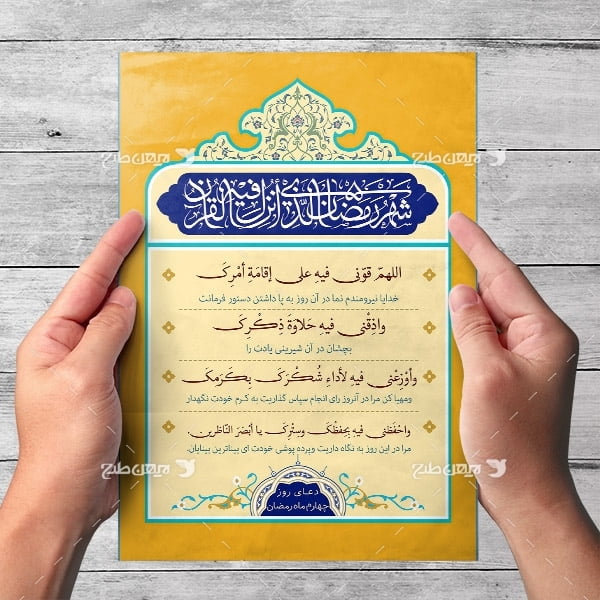 شَهْرُ رَمَضَانَ الَّذِي أُنْزِلَ فِيهِ الْقُرْآنُ
اللهمّ قوّنی فیهِ علی إقامَةِ أمْرِکَ
خدایا نیرومندم نما در آن روز به پا داشتن دستور فرمانت
واذِقْنی فیهِ حَلاوَةَ ذِکْرِکَ
بچشان در آن شیرینی یادت را
وأوْزِعْنی فیهِ لأداءِ شُکْرَکَ بِکَرَمِکَ
ومهیا کن مرا در آنروز رای انجام سپاس گذاریت به کرم خودت نگهدار
واحْفَظنی فیهِ بِحِفظْکَ وسِتْرِکَ یا أبْصَرَ النّاظرین.
مرا در این روز به نگاه داریت وپرده پوشی خودت ای بیناترین بینایان.
دعای روز
چهارم ماه رمضان
میهن طرح